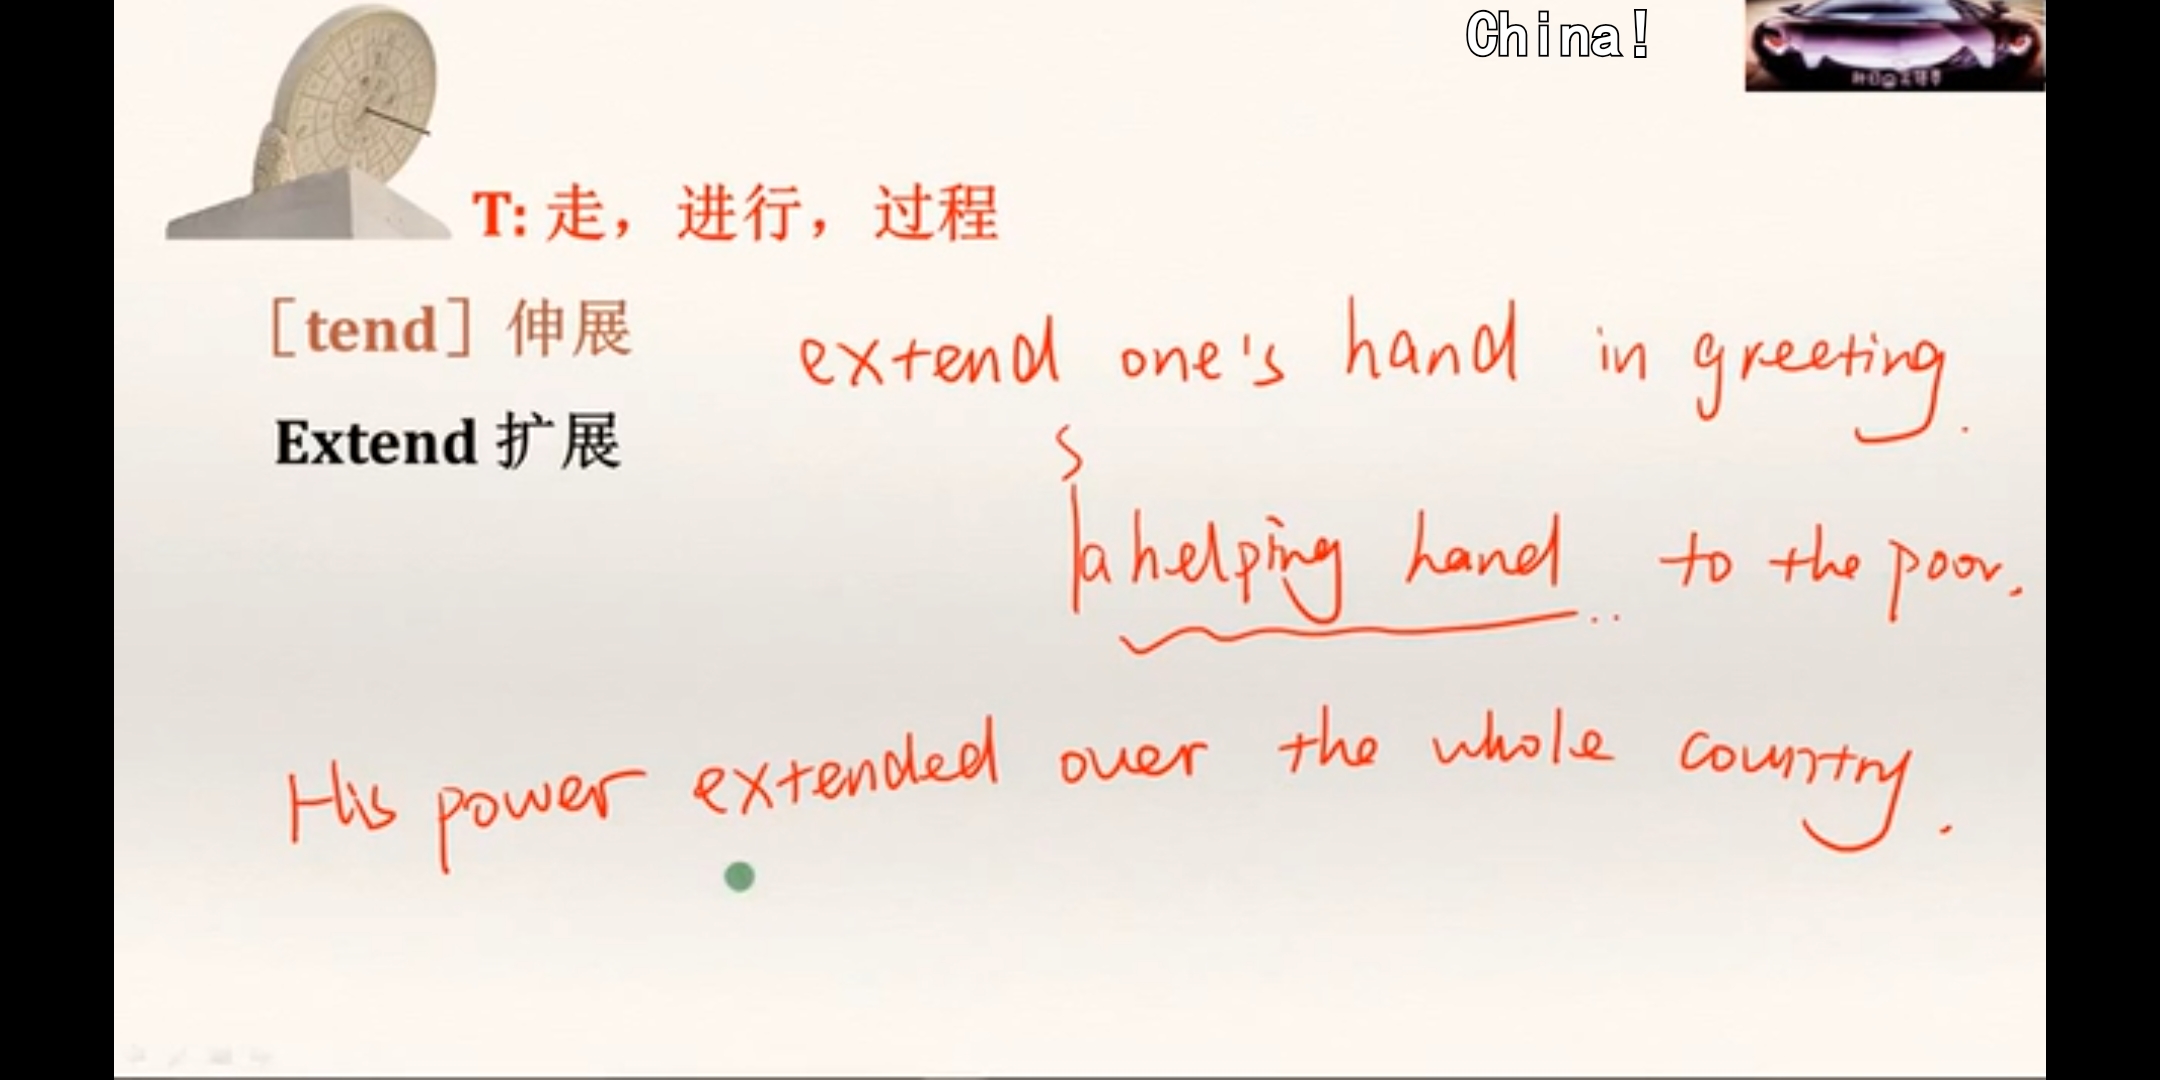 China!
T: 走，进行，过程
［tend］伸展
extend one's hand in greeting.
Extend 扩展
s
a helping hand .. to the poor.
His power extended over the whole country.